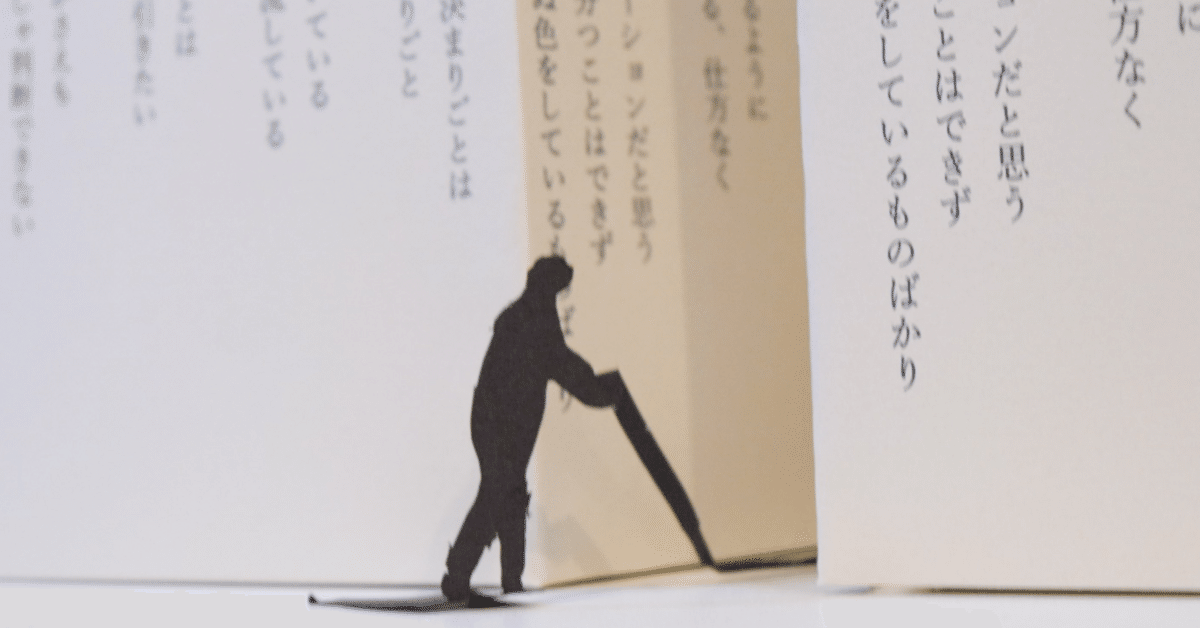 に
方なく
ンだと思う
ことはできず
をしているものばかり
るように
る、仕方なく
ーションだと思う
つことはできず
ぬ色をしているも
決まりごとは
りごと
ている
している
とは
引きたい
さえも
判断できない